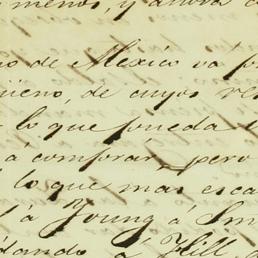 menos, y ahora
no de México va p
ueno, de cuyos re
lo que pueda
á comprar, pero
lo que mas esca
á Young á Sm
dando á Hill,